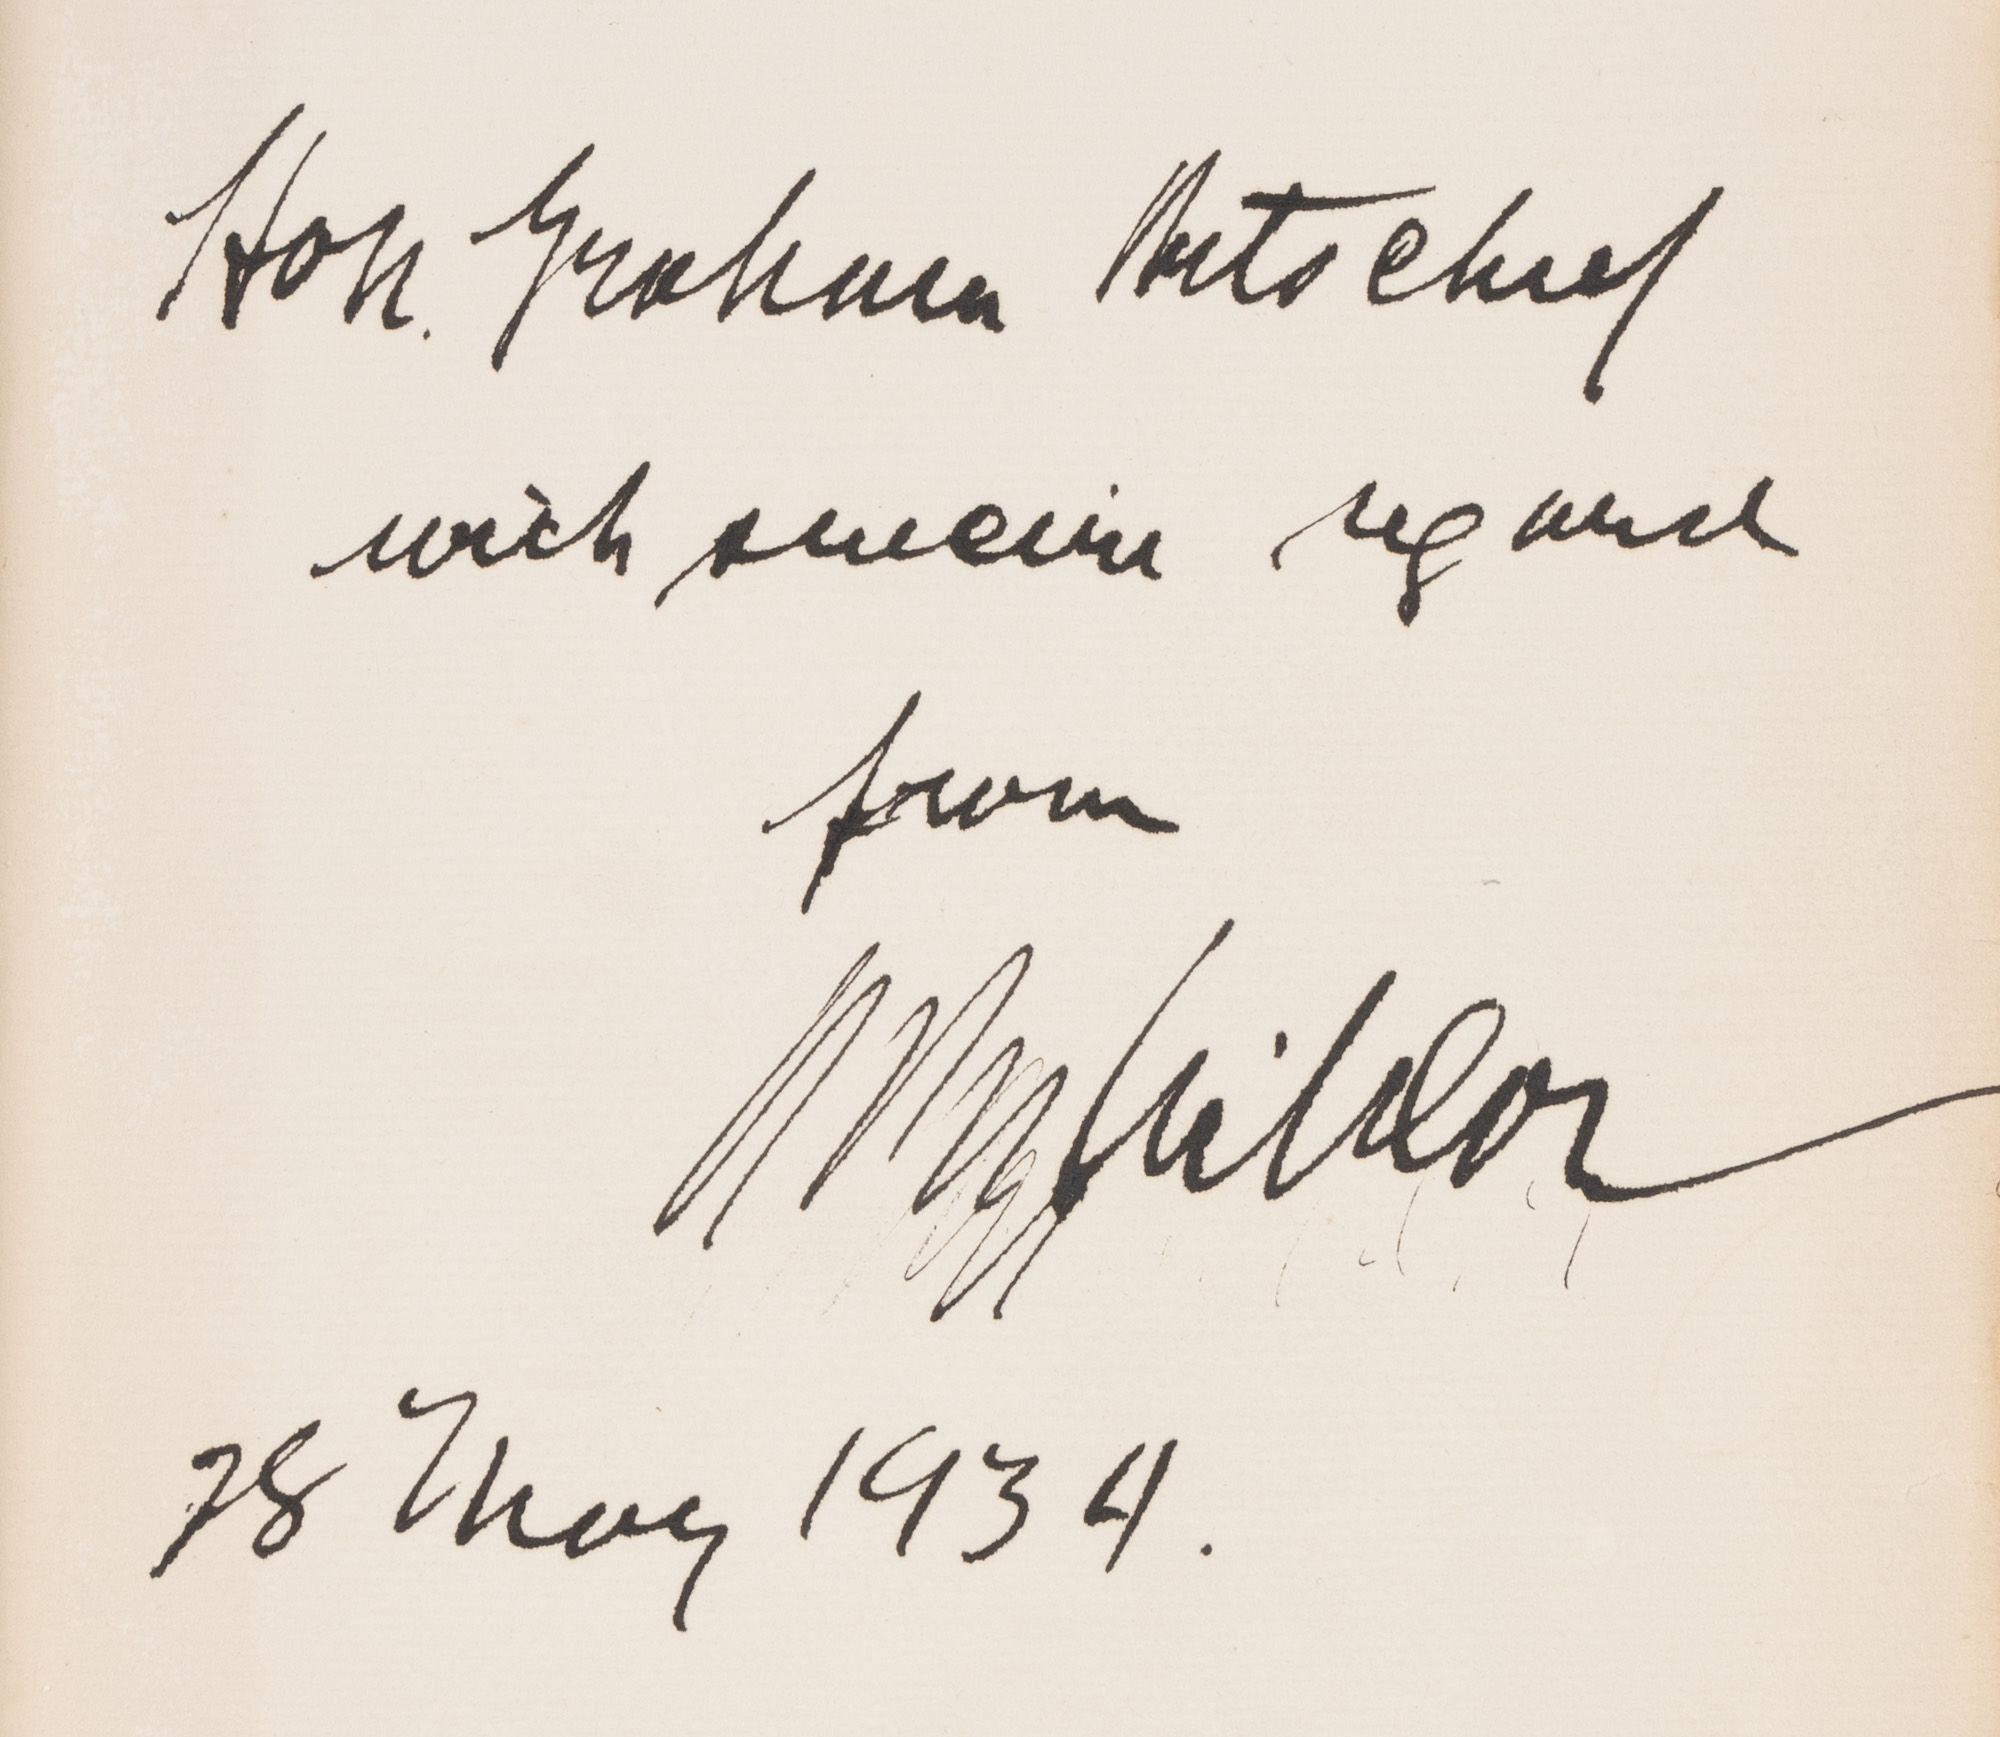 Hon. Graham
with sincere regard
from
28 May 1934.